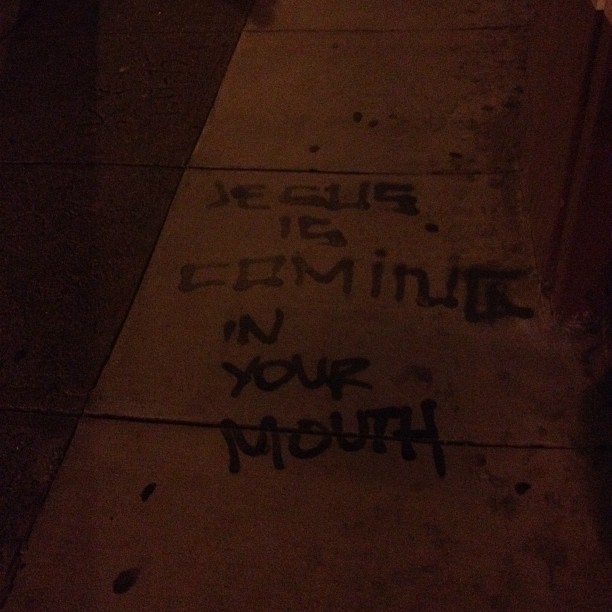 JESUS
IS
COMING
IN
YOUR
MOUTH